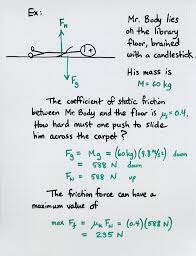 Ex:
Mr. Body lies
on the library
floor, brained
with a candlestick.
His mass is
M = 60 kg
F_N
F_g
The coefficient of static friction
between Mr. Body and the floor is μ_s = 0.4.
How hard must one push to slide
him across the carpet?
F_g = Mg = (60 kg)(9.8 m/s²) down
= 588 N down
F_N = 588 N up
The friction force can have a
maximum value of
max F_f = μ_s F_N = (0.4)(588 N)
= 235 N